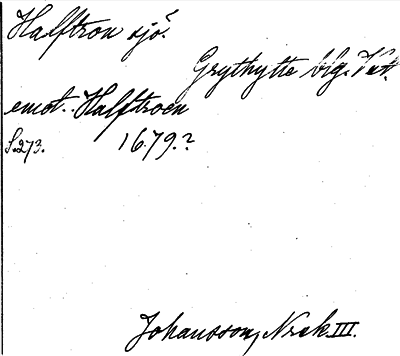 Halftron sjö.
Grythytte blg. Vstm.
emot. Halftroen
S.273. 1679.?
Johansson, Nrsk III.